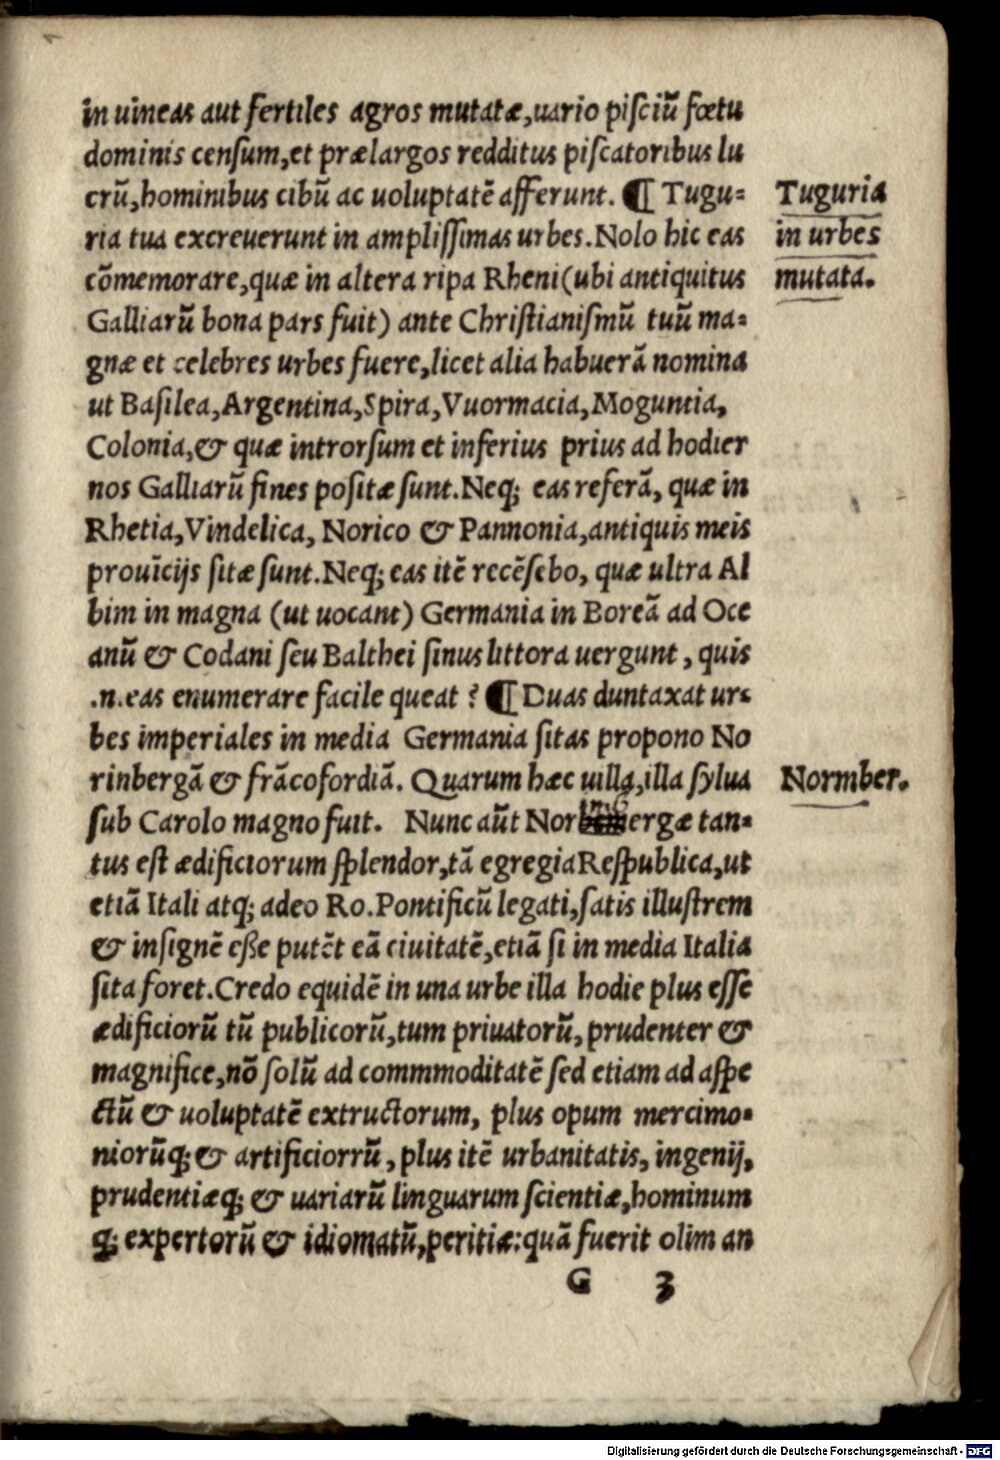 in uineas aut fertiles agros mutatæ,uario pisciũ fœtu
dominis censum,et prælargos redditus piscatoribus lu
crũ,hominibus cibũ ac uoluptatẽ afferunt. ¶ Tugu=
Tuguria
ria tua excreuerunt in amplissimas urbes.Nolo hic eas
in urbes
cõmemorare,quæ in altera ripa Rheni(ubi antiquitus
mutata.
Galliarũ bona pars fuit) ante Christianismũ tuũ ma=
gnæ et celebres urbes fuere,licet alia habuerã nomina
ut Basilea,Argentina,Spira,Vuormacia,Moguntia,
Colonia,& quæ introrsum et inferius prius ad hodier
nos Galliarũ fines positæ sunt.Neq; eas referã, quæ in
Rhetia,Vindelica, Norico & Pannonia,antiquis meis
prouĩcijs sitæ sunt.Neq; eas itẽ recẽsebo, quæ ultra Al
bim in magna (ut uocant) Germania in Boreã ad Oce
anũ & Codani seu Balthei sinus littora uergunt, quis
.n.eas enumerare facile queat ? ¶ Duas duntaxat ur=
bes imperiales in media Germania sitas propono No
rinbergã & frãcofordiã. Quarum hæc uilla,illa sylua
Normber.
sub Carolo magno fuit. Nunc aũt Norergæ tan=
tus est ædificiorum splendor,tã egregia Respublica,ut
etiã Itali atq; adeo Ro.Pontificũ legati,satis illustrem
& insignẽ eße putẽt eã ciuitatẽ,etiã si in media Italia
sita foret.Credo equidẽ in una urbe illa hodie plus esse
ædificiorũ tũ publicorũ,tum priuatorũ,prudenter &
magnifice,nõ solũ ad commmoditatẽ sed etiam ad aspe
ctũ & uoluptatẽ extructorum, plus opum mercimo=
niorũq; & artificiorrũ, plus itẽ urbanitatis, ingenij,
prudentiæq; & uariarũ linguarum scientiæ,hominum
q; expertorũ & idiomatũ,peritiæ:quã fuerit olim an
G 3
Digitalisierung gefördert durch die Deutsche Forschungsgemeinschaft - DFG